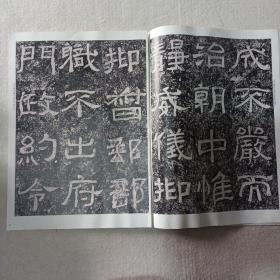 成不嚴而
治朝中惟
靜威儀抑
抑督郵部
職不出府
門政約令